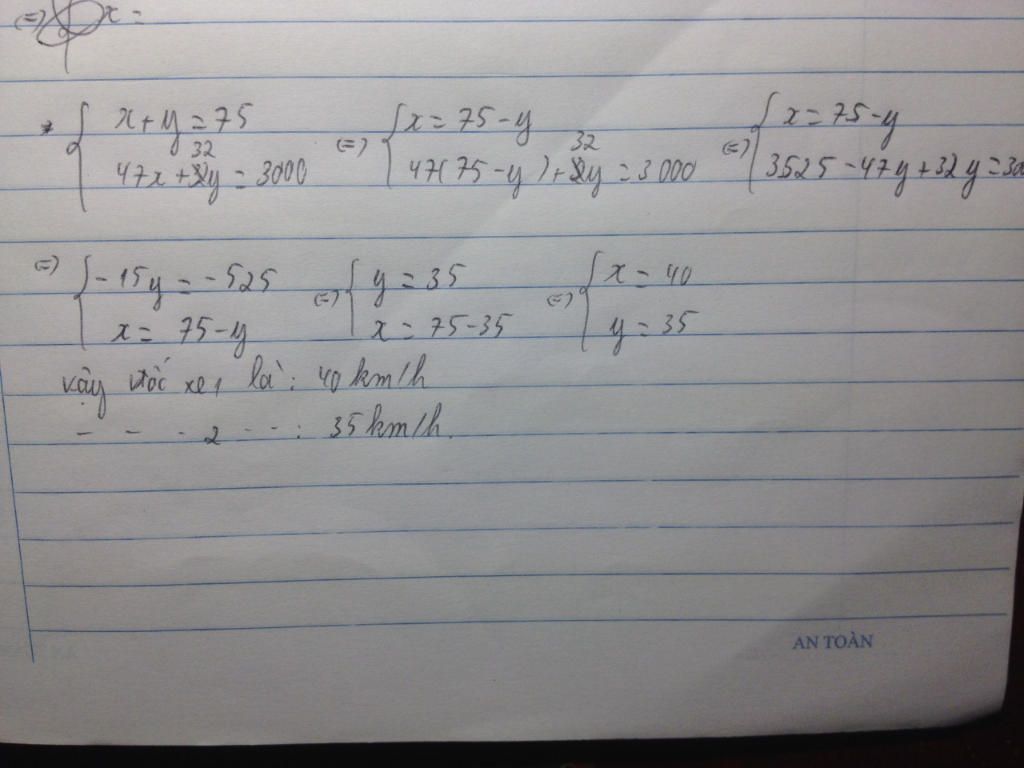 (=) x =
* { x + y = 75 47x + 32y = 3000 (=) { x = 75 - y 47(75 - y) + 32y = 3000 (=) { x = 75 - y 3525 - 47y + 32y = 300
(=) { - 15y = - 525 x = 75 - y (=) { y = 35 x = 75 - 35 (=) { x = 40 y = 35
vậy vtốc xe 1 là : 40 km/h
- - - 2 - - : 35 km/h.
AN TOÀN